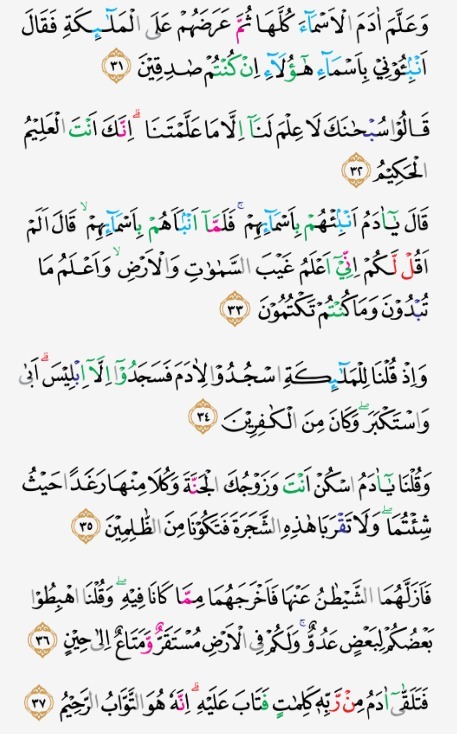 وَعَلَّمَ اٰدَمَ الْاَسْمَاۤءَ كُلَّهَا ثُمَّ عَرَضَهُمْ عَلَى الْمَلٰۤىِٕكَةِ فَقَالَ
اَنْۢبِـُٔوْنِيْ بِاَسْمَاۤءِ هٰٓؤُلَاۤءِ اِنْ كُنْتُمْ صٰدِقِيْنَ ٣١
قَالُوْا سُبْحٰنَكَ لَا عِلْمَ لَنَآ اِلَّا مَا عَلَّمْتَنَا ۗ اِنَّكَ اَنْتَ الْعَلِيْمُ
الْحَكِيْمُ ٣٢
قَالَ يٰٓاٰدَمُ اَنْۢبِئْهُمْ بِاَسْمَاۤىِٕهِمْ ۚ فَلَمَّآ اَنْۢبَاَهُمْ بِاَسْمَاۤىِٕهِمْ ۙ قَالَ اَلَمْ
اَقُلْ لَّكُمْ اِنِّيْٓ اَعْلَمُ غَيْبَ السَّمٰوٰتِ وَالْاَرْضِ ۙ وَاَعْلَمُ مَا
تُبْدُوْنَ وَمَا كُنْتُمْ تَكْتُمُوْنَ ٣٣
وَاِذْ قُلْنَا لِلْمَلٰۤىِٕكَةِ اسْجُدُوْا لِاٰدَمَ فَسَجَدُوْٓا اِلَّآ اِبْلِيْسَ ۗ اَبٰى
وَاسْتَكْبَرَ ۖ وَكَانَ مِنَ الْكٰفِرِيْنَ ٣٤
وَقُلْنَا يٰٓاٰدَمُ اسْكُنْ اَنْتَ وَزَوْجُكَ الْجَنَّةَ وَكُلَا مِنْهَا رَغَدًا حَيْثُ
شِئْتُمَا ۖ وَلَا تَقْرَبَا هٰذِهِ الشَّجَرَةَ فَتَكُوْنَا مِنَ الظّٰلِمِيْنَ ٣٥
فَاَزَلَّهُمَا الشَّيْطٰنُ عَنْهَا فَاَخْرَجَهُمَا مِمَّا كَانَا فِيْهِ ۖ وَقُلْنَا اهْبِطُوْا
بَعْضُكُمْ لِبَعْضٍ عَدُوٌّ ۚ وَلَكُمْ فِى الْاَرْضِ مُسْتَقَرٌّ وَّمَتَاعٌ اِلٰى حِيْنٍ ٣٦
فَتَلَقّٰٓى اٰدَمُ مِنْ رَّبِّهٖ كَلِمٰتٍ فَتَابَ عَلَيْهِ ۗ اِنَّهٗ هُوَ التَّوَّابُ الرَّحِيْمُ ٣٧